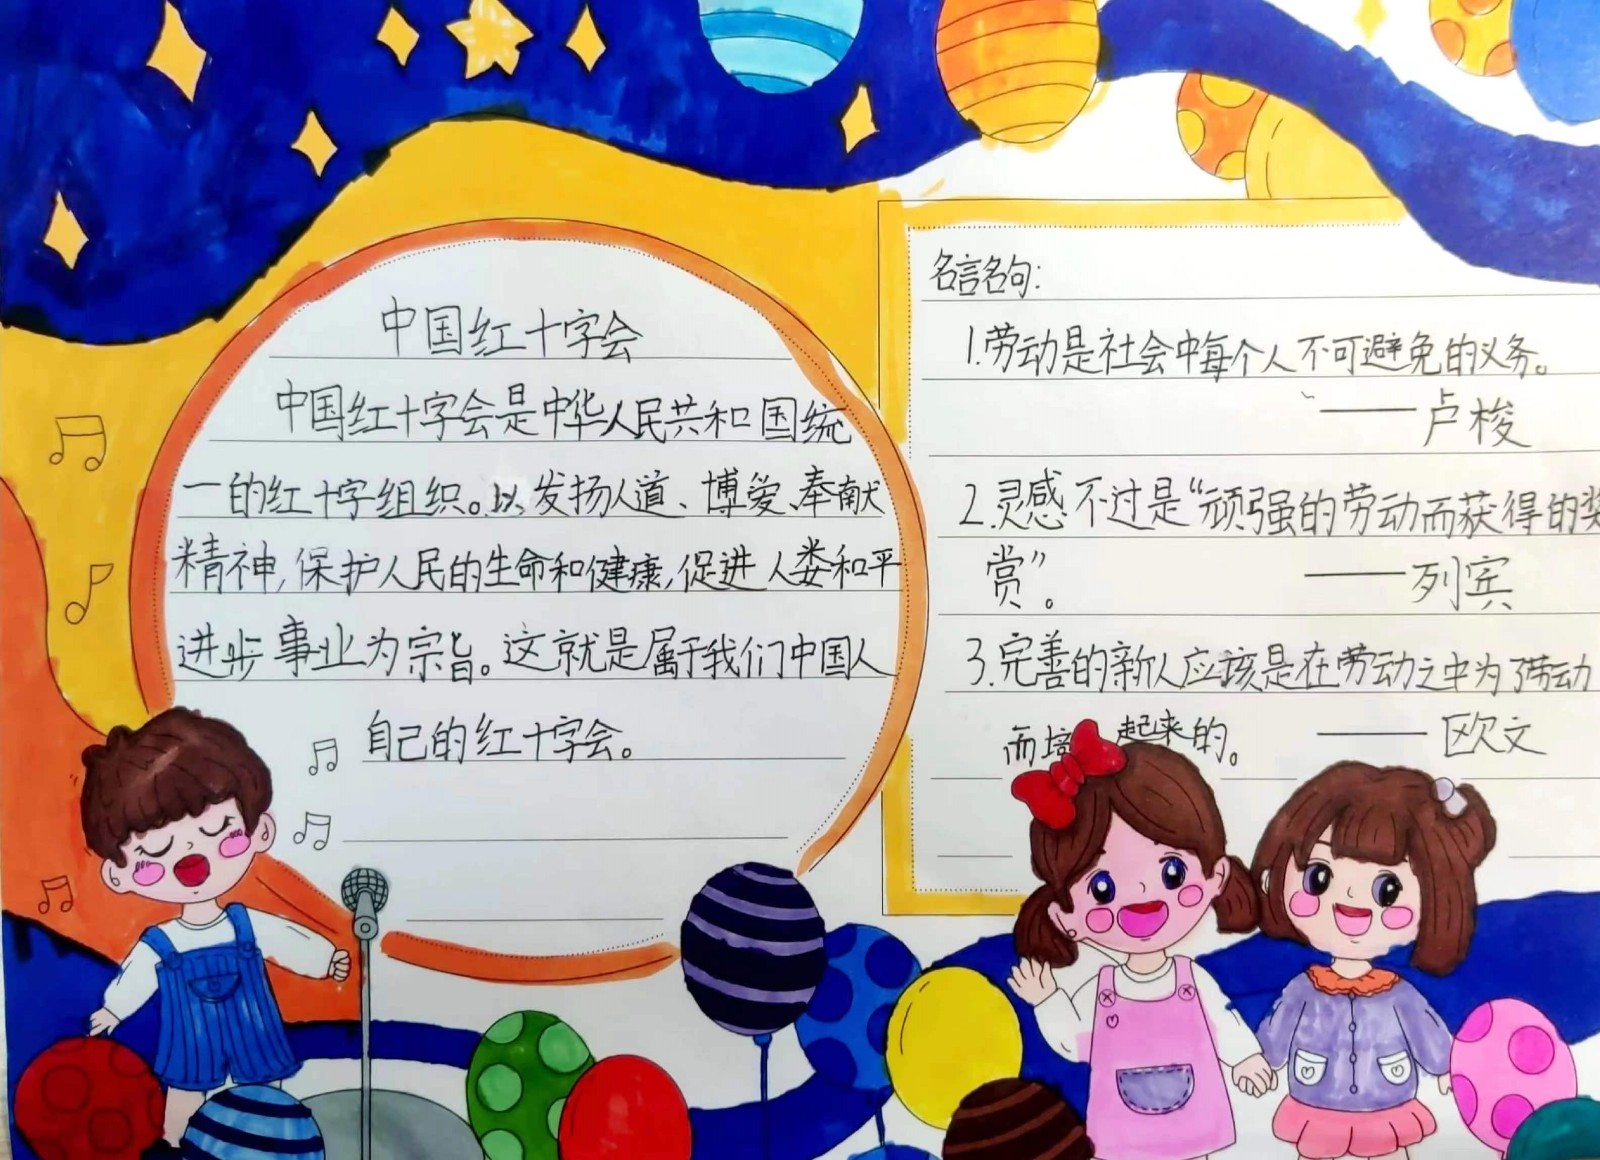 中国红十字会
中国红十字会是中华人民共和国统
一的红十字组织。以发扬人道、博爱、奉献
精神,保护人民的生命和健康,促进人类和平
进步事业为宗旨。这就是属于我们中国人
自己的红十字会。
名言名句:
1.劳动是社会中每个人不可避免的义务。
——卢梭
2.灵感不过是“顽强的劳动而获得的奖
赏”。 ——列宾
3.完善的新人应该是在劳动之中为了劳动
而培 起来的。 ——欧文